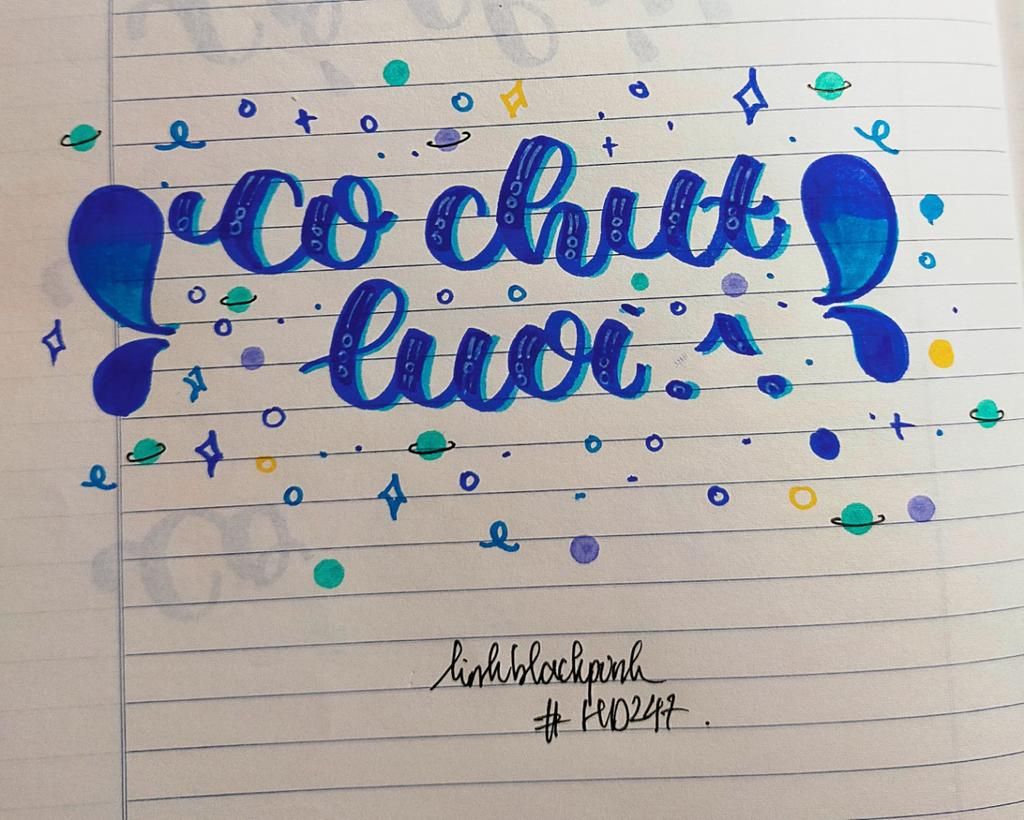 Co chut
luoi
linhblackpink
# HD247.